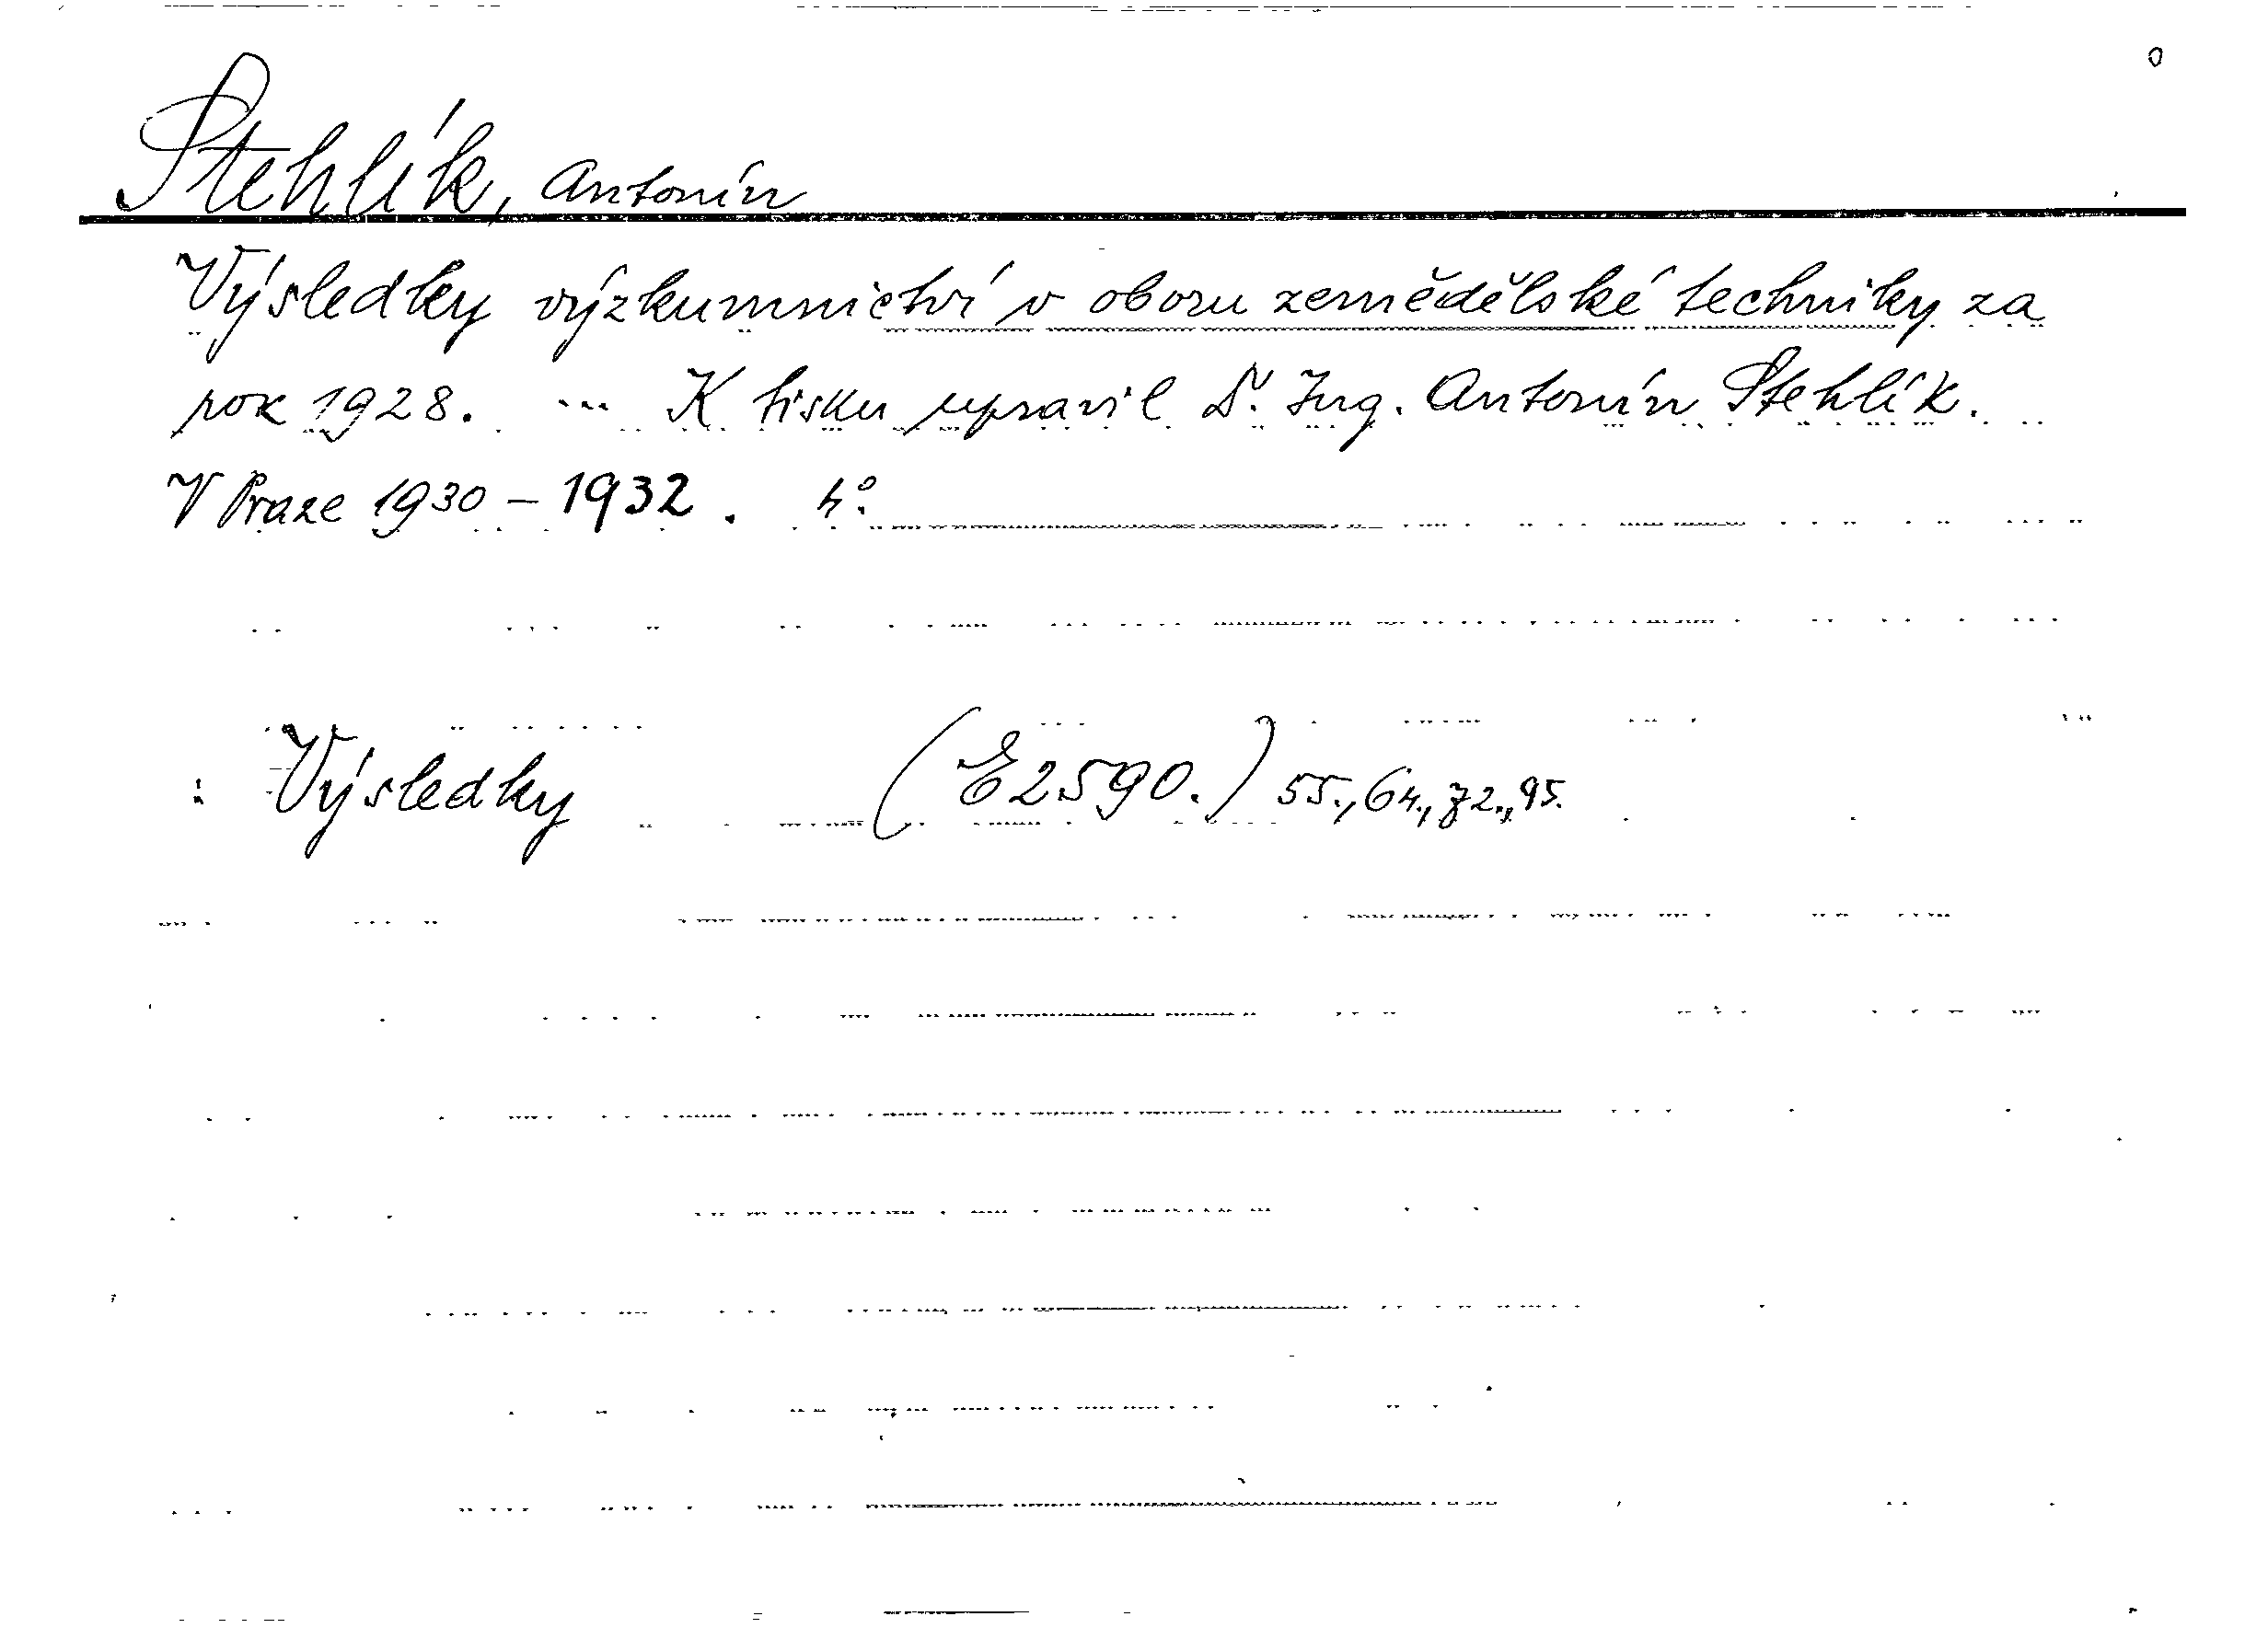 Stehlík, Antonín
Výsledky výzkumnictví v oboru zemědělské techniky za
rok 1928. ... K tisku upravil Dr. Ing. Antonín Stehlík.
V Praze 1930 – 1932. 4°.
: Výsledky (E2590.) 55., 64., 72., 95.